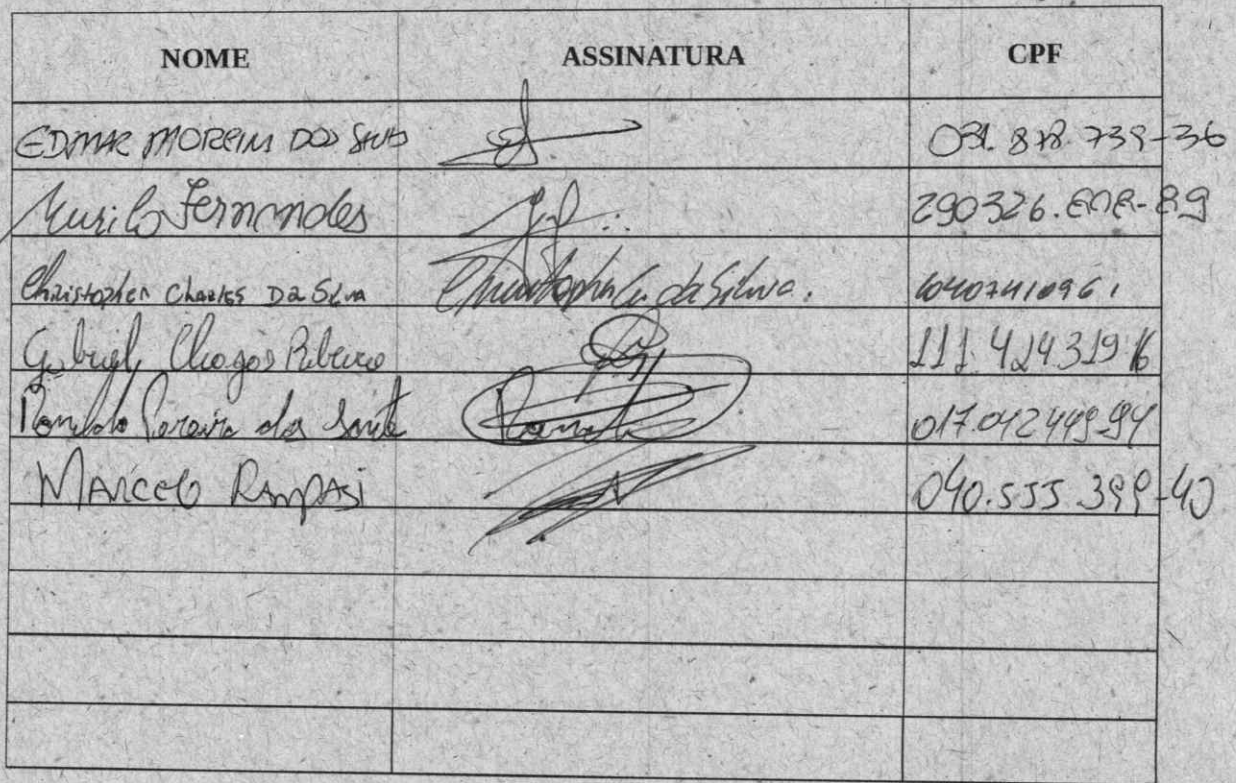 NOME ASSINATURA CPF
EDMAR MOREIRA DOS 031.878.739-36
Murilo Fernandes 290326.
Christopher Charles Da Silva Christopher C. da Silva. 10407410961
Gabriel Chagas Ribeiro 111.424.319 16
Romildo Pereira dos 017.042449-94
MARCELO RAMPASI 040.555.399-40